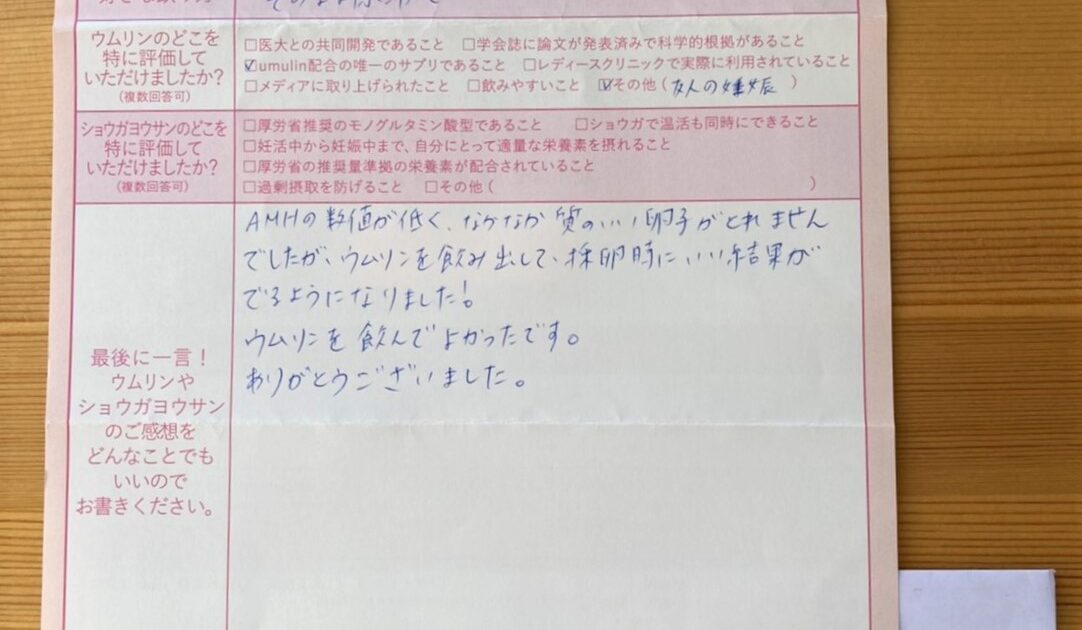 ウムリンのどこを
特に評価して
いただけましたか?
(複数回答可)
□医大との共同開発であること □学会誌に論文が発表済みで科学的根拠があること
☑umulin配合の唯一のサプリであること □レディースクリニックで実際に利用されていること
□メディアに取り上げられたこと □飲みやすいこと ☑その他(友人の妊娠 )
ショウガヨウサンのどこを
特に評価して
いただけましたか?
(複数回答可)
□厚労省推奨のモノグルタミン酸型であること □ショウガで温活も同時にできること
□妊活中から妊娠中まで、自分にとって適量な栄養素を摂れること
□厚労省の推奨量準拠の栄養素が配合されていること
□過剰摂取を防げること □その他( )
最後に一言!
ウムリンや
ショウガヨウサン
のご感想を
どんなことでも
いいので
お書きください。
AMHの数値が低く、なかなか質のいい卵子がとれません
でしたが、ウムリンを飲み出して、採卵時にいい結果が
でるようになりました!
ウムリンを飲んでよかったです。
ありがとうございました。